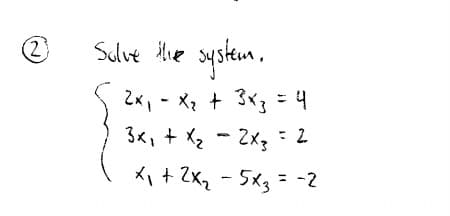 ② Solve the system.
2x₁ - x₂ + 3x₃ = 4
3x₁ + x₂ - 2x₃ = 2
x₁ + 2x₂ - 5x₃ = -2